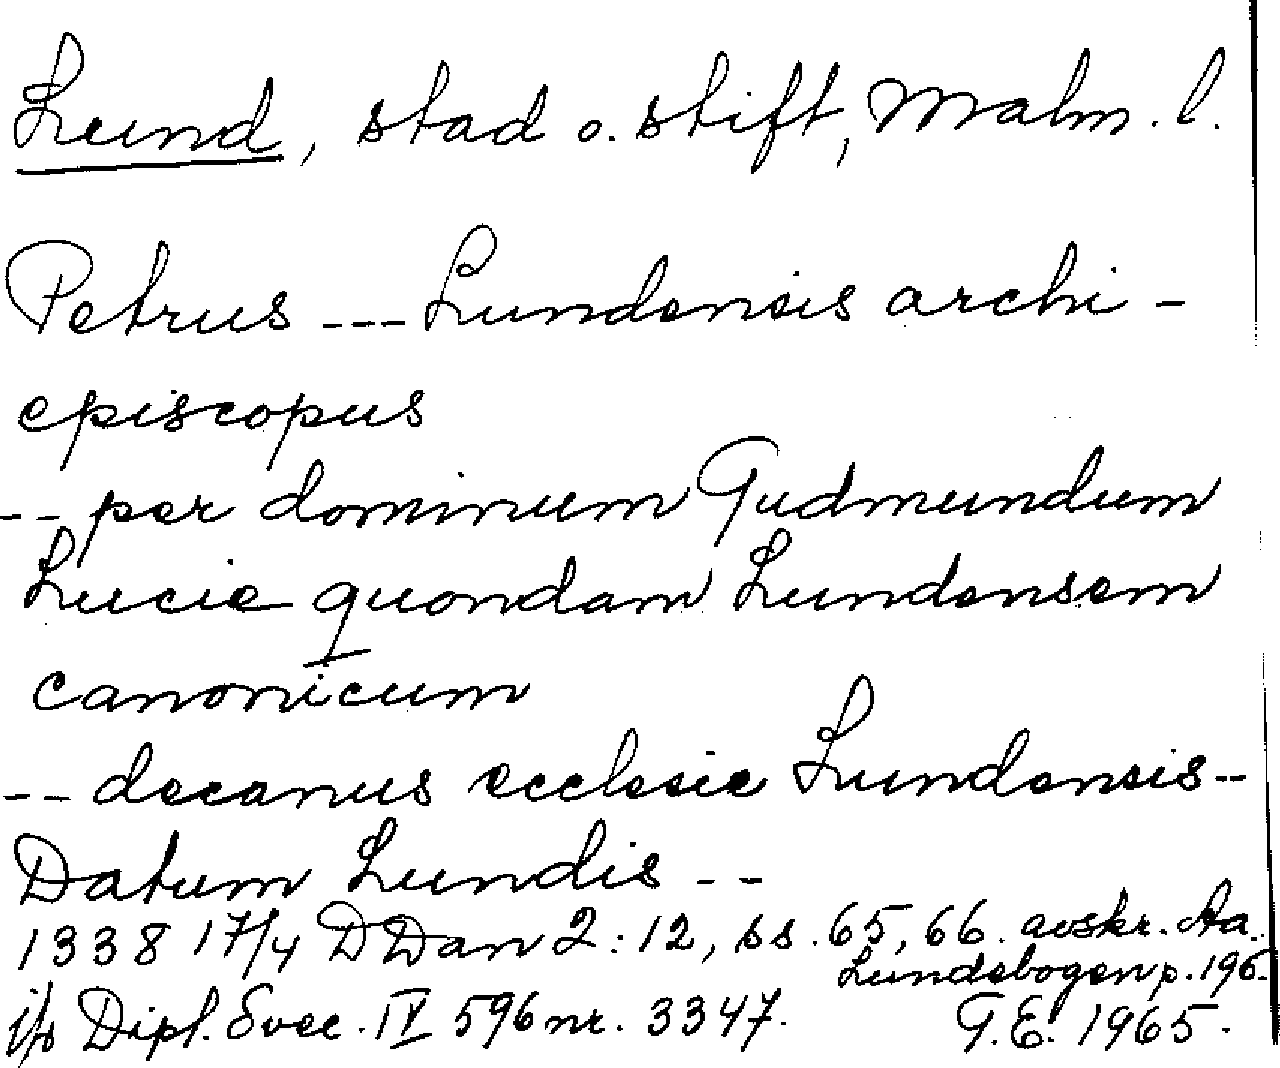 Lund, stad o. stift, Malm. l.
Petrus --- Lundensis archi-
episcopus
-- per dominum Gudmundum
Lucie quondam Lundensem
canonicum
-- decanus ecclesie Lundensis--
Datum Lundis --
1338 17/4 DDan 2:12, ss. 65, 66. avskr. Aa.
Lundebogen p. 196.
Dipl. Svec. IV 596 nr. 3347.
G.E. 1965.